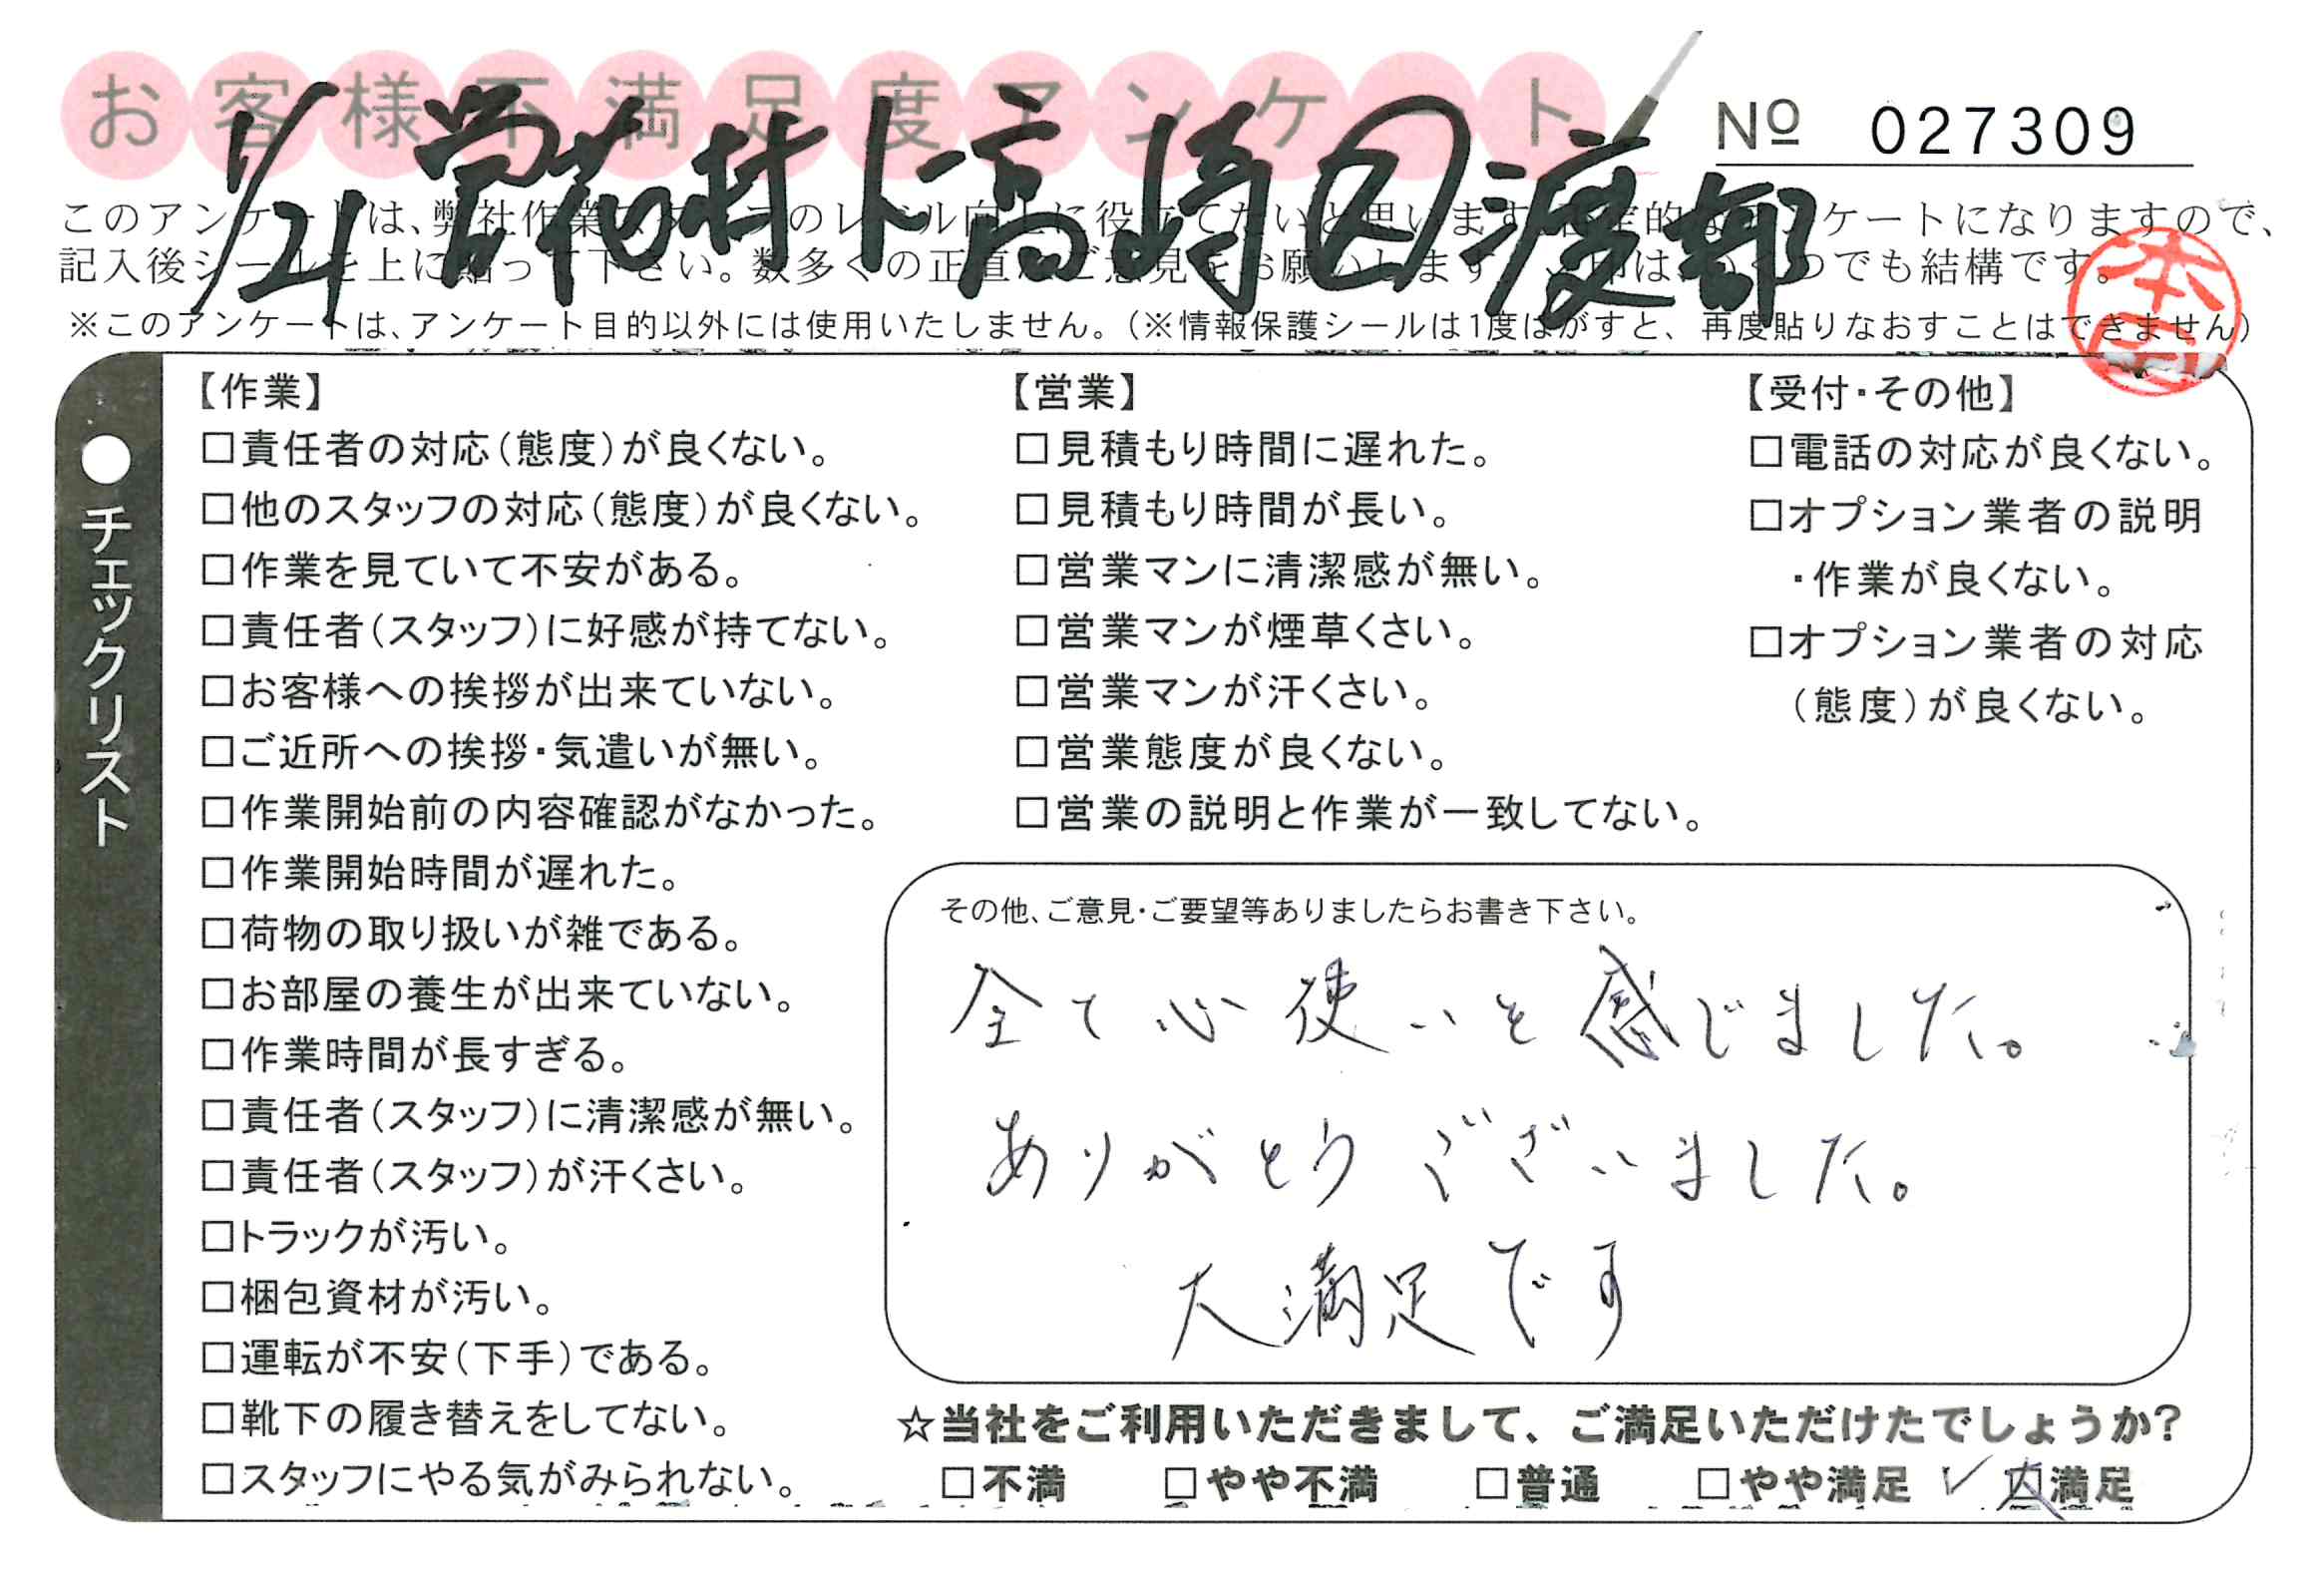 お客様不満足度アンケート
№ 027309
1/21 営花村ト高崎 渡部
このアンケートは、弊社作業スタッフのレベル向上に役立てたいと思います。 ケートになりますので、
記入後シールを上に貼って下さい。数多くの正直なご意見をお願いします。 印は、いくつでも結構です。
※このアンケートは、アンケート目的以外には使用いたしません。(※情報保護シールは1度はがすと、再度貼りなおすことはできません)
●チェックリスト
【作業】
□責任者の対応(態度)が良くない。
□他のスタッフの対応(態度)が良くない。
□作業を見ていて不安がある。
□責任者(スタッフ)に好感が持てない。
□お客様への挨拶が出来ていない。
□ご近所への挨拶・気遣いが無い。
□作業開始前の内容確認がなかった。
□作業開始時間が遅れた。
□荷物の取り扱いが雑である。
□お部屋の養生が出来ていない。
□作業時間が長すぎる。
□責任者(スタッフ)に清潔感が無い。
□責任者(スタッフ)が汗くさい。
□トラックが汚い。
□梱包資材が汚い。
□運転が不安(下手)である。
□靴下の履き替えをしてない。
□スタッフにやる気がみられない。
【営業】
□見積もり時間に遅れた。
□見積もり時間が長い。
□営業マンに清潔感が無い。
□営業マンが煙草くさい。
□営業マンが汗くさい。
□営業態度が良くない。
□営業の説明と作業が一致してない。
【受付・その他】
□電話の対応が良くない。
□オプション業者の説明
・作業が良くない。
□オプション業者の対応
(態度)が良くない。
その他、ご意見・ご要望等ありましたらお書き下さい。
全て心使いを感じました。
ありがとうございました。
大満足です
☆当社をご利用いただきまして、ご満足いただけたでしょうか?
□不満 □やや不満 □普通 □やや満足 ✓大満足